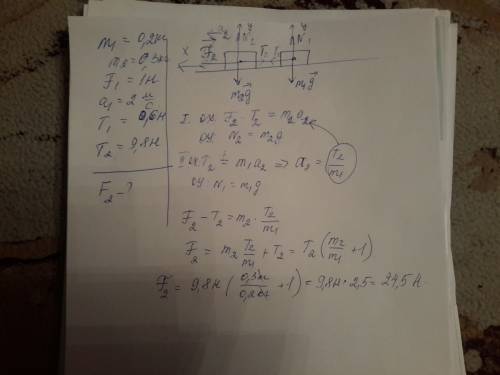 m₁ = 0,2кг
m₂ = 0,3кг
F₁ = 1Н
a₁ = 2 м/с
T₁ = 0,6н
T₂ = 9,8н
F₂ - ?
x F₂ a₂ N₂ y T₂ N₁ y
m₂g m₁g
I. ox: F₂ - T₂ = m₂a₂
oy: N₂ = m₂g
II ox: T₂ = m₁a₂ => a₂ = T₂/m₁
oy: N₁ = m₁g
F₂ - T₂ = m₂ · T₂/m₁
F₂ = m₂ T₂/m₁ + T₂ = T₂ (m₂/m₁ + 1)
F₂ = 9,8н (0,3кг/0,2кг + 1) = 9,8н · 2,5 = 24,5 н.